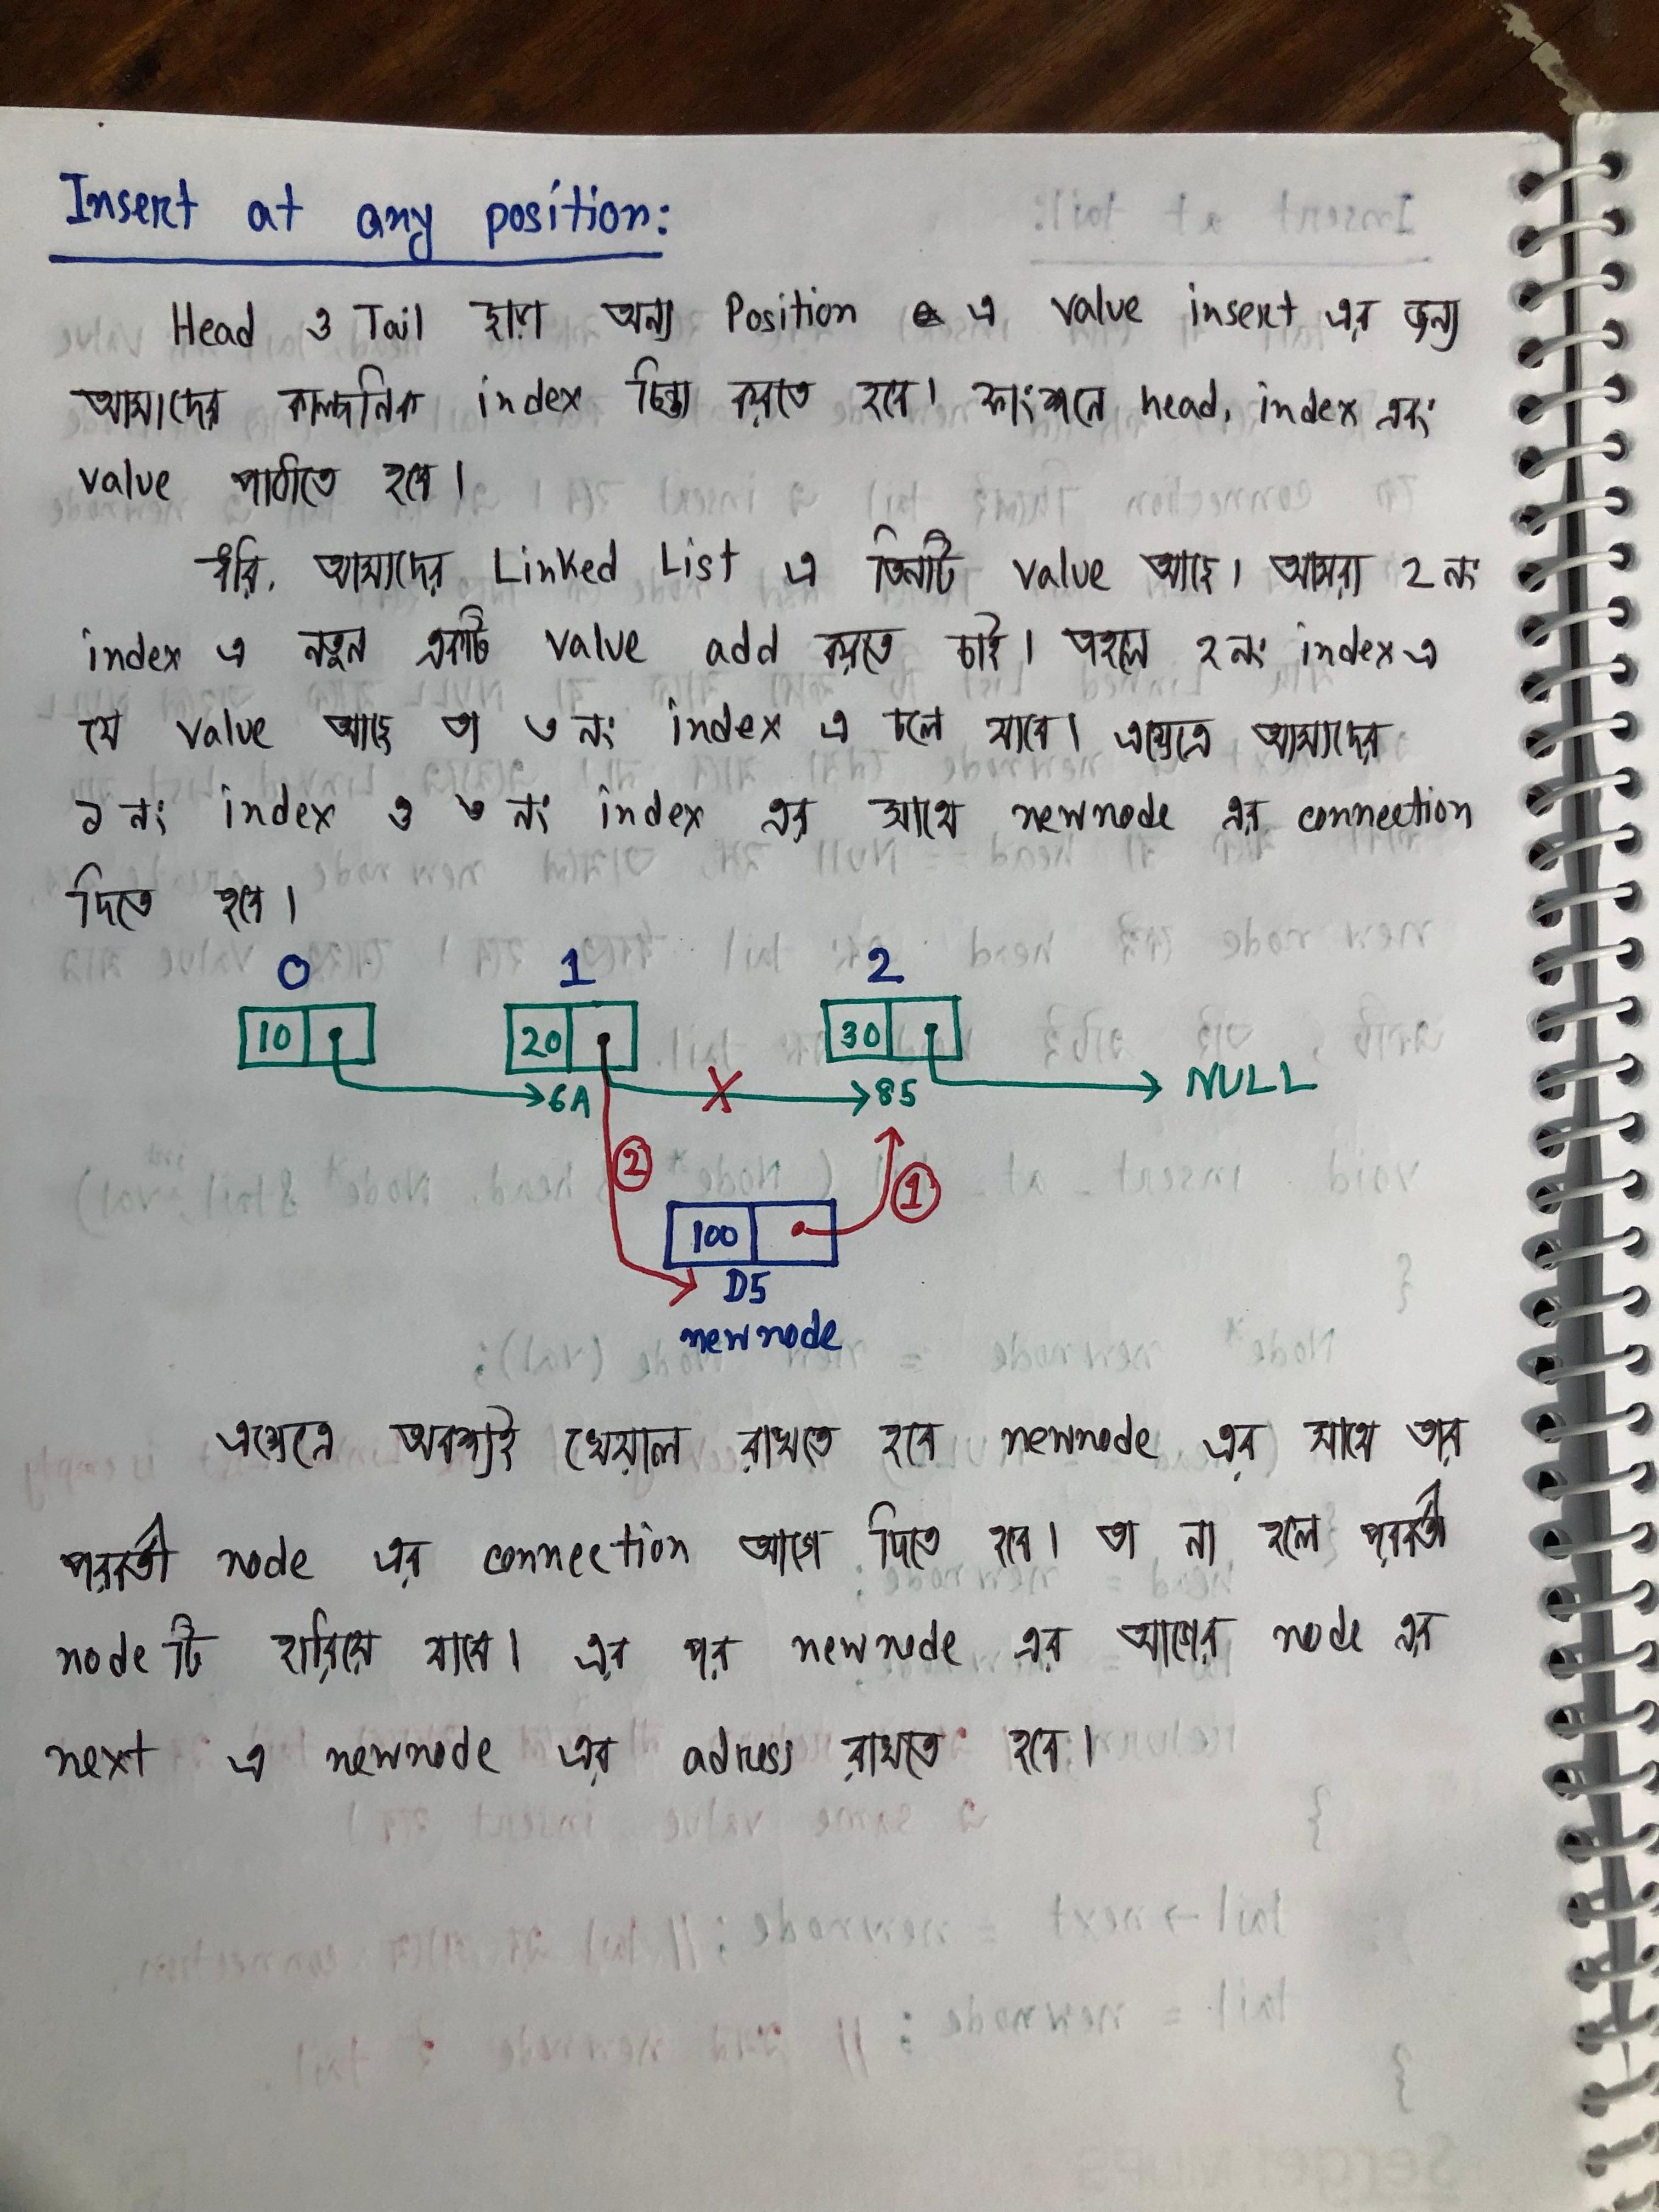 Insert at any position:
Head ও Tail ছাড়া অন্য Position এ value insert এর জন্য
আমাদের কাল্পনিক index চিন্তা করতে হবে। ফাংশনে head, index এবং
value পাঠাতে হবে।
ধরি, আমাদের Linked List এ তিনটি value আছে। আমরা 2 নং
index এ নতুন একটি value add করতে চাই। তাহলে ২ নং index এ
যে value আছে তা ৩ নং index এ চলে যাবে। এক্ষেত্রে আমাদের
১ নং index ও ৩ নং index এর সাথে newnode এর connection
দিতে হবে।
0 1 2
10 20 30
6A X 85 NULL
2 1
100
D5
newnode
এক্ষেত্রে অবশ্যই খেয়াল রাখতে হবে newnode এর সাথে তার
পরবর্তী node এর connection আগে দিতে হবে। তা না হলে পরবর্তী
node টি হারিয়ে যাবে। এর পর newnode এর আগের node এর
next এ newnode এর adress রাখতে হবে।